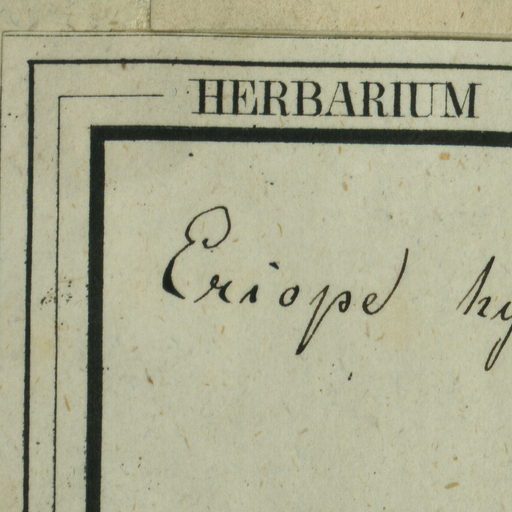 HERBARIUM
Eriope hy